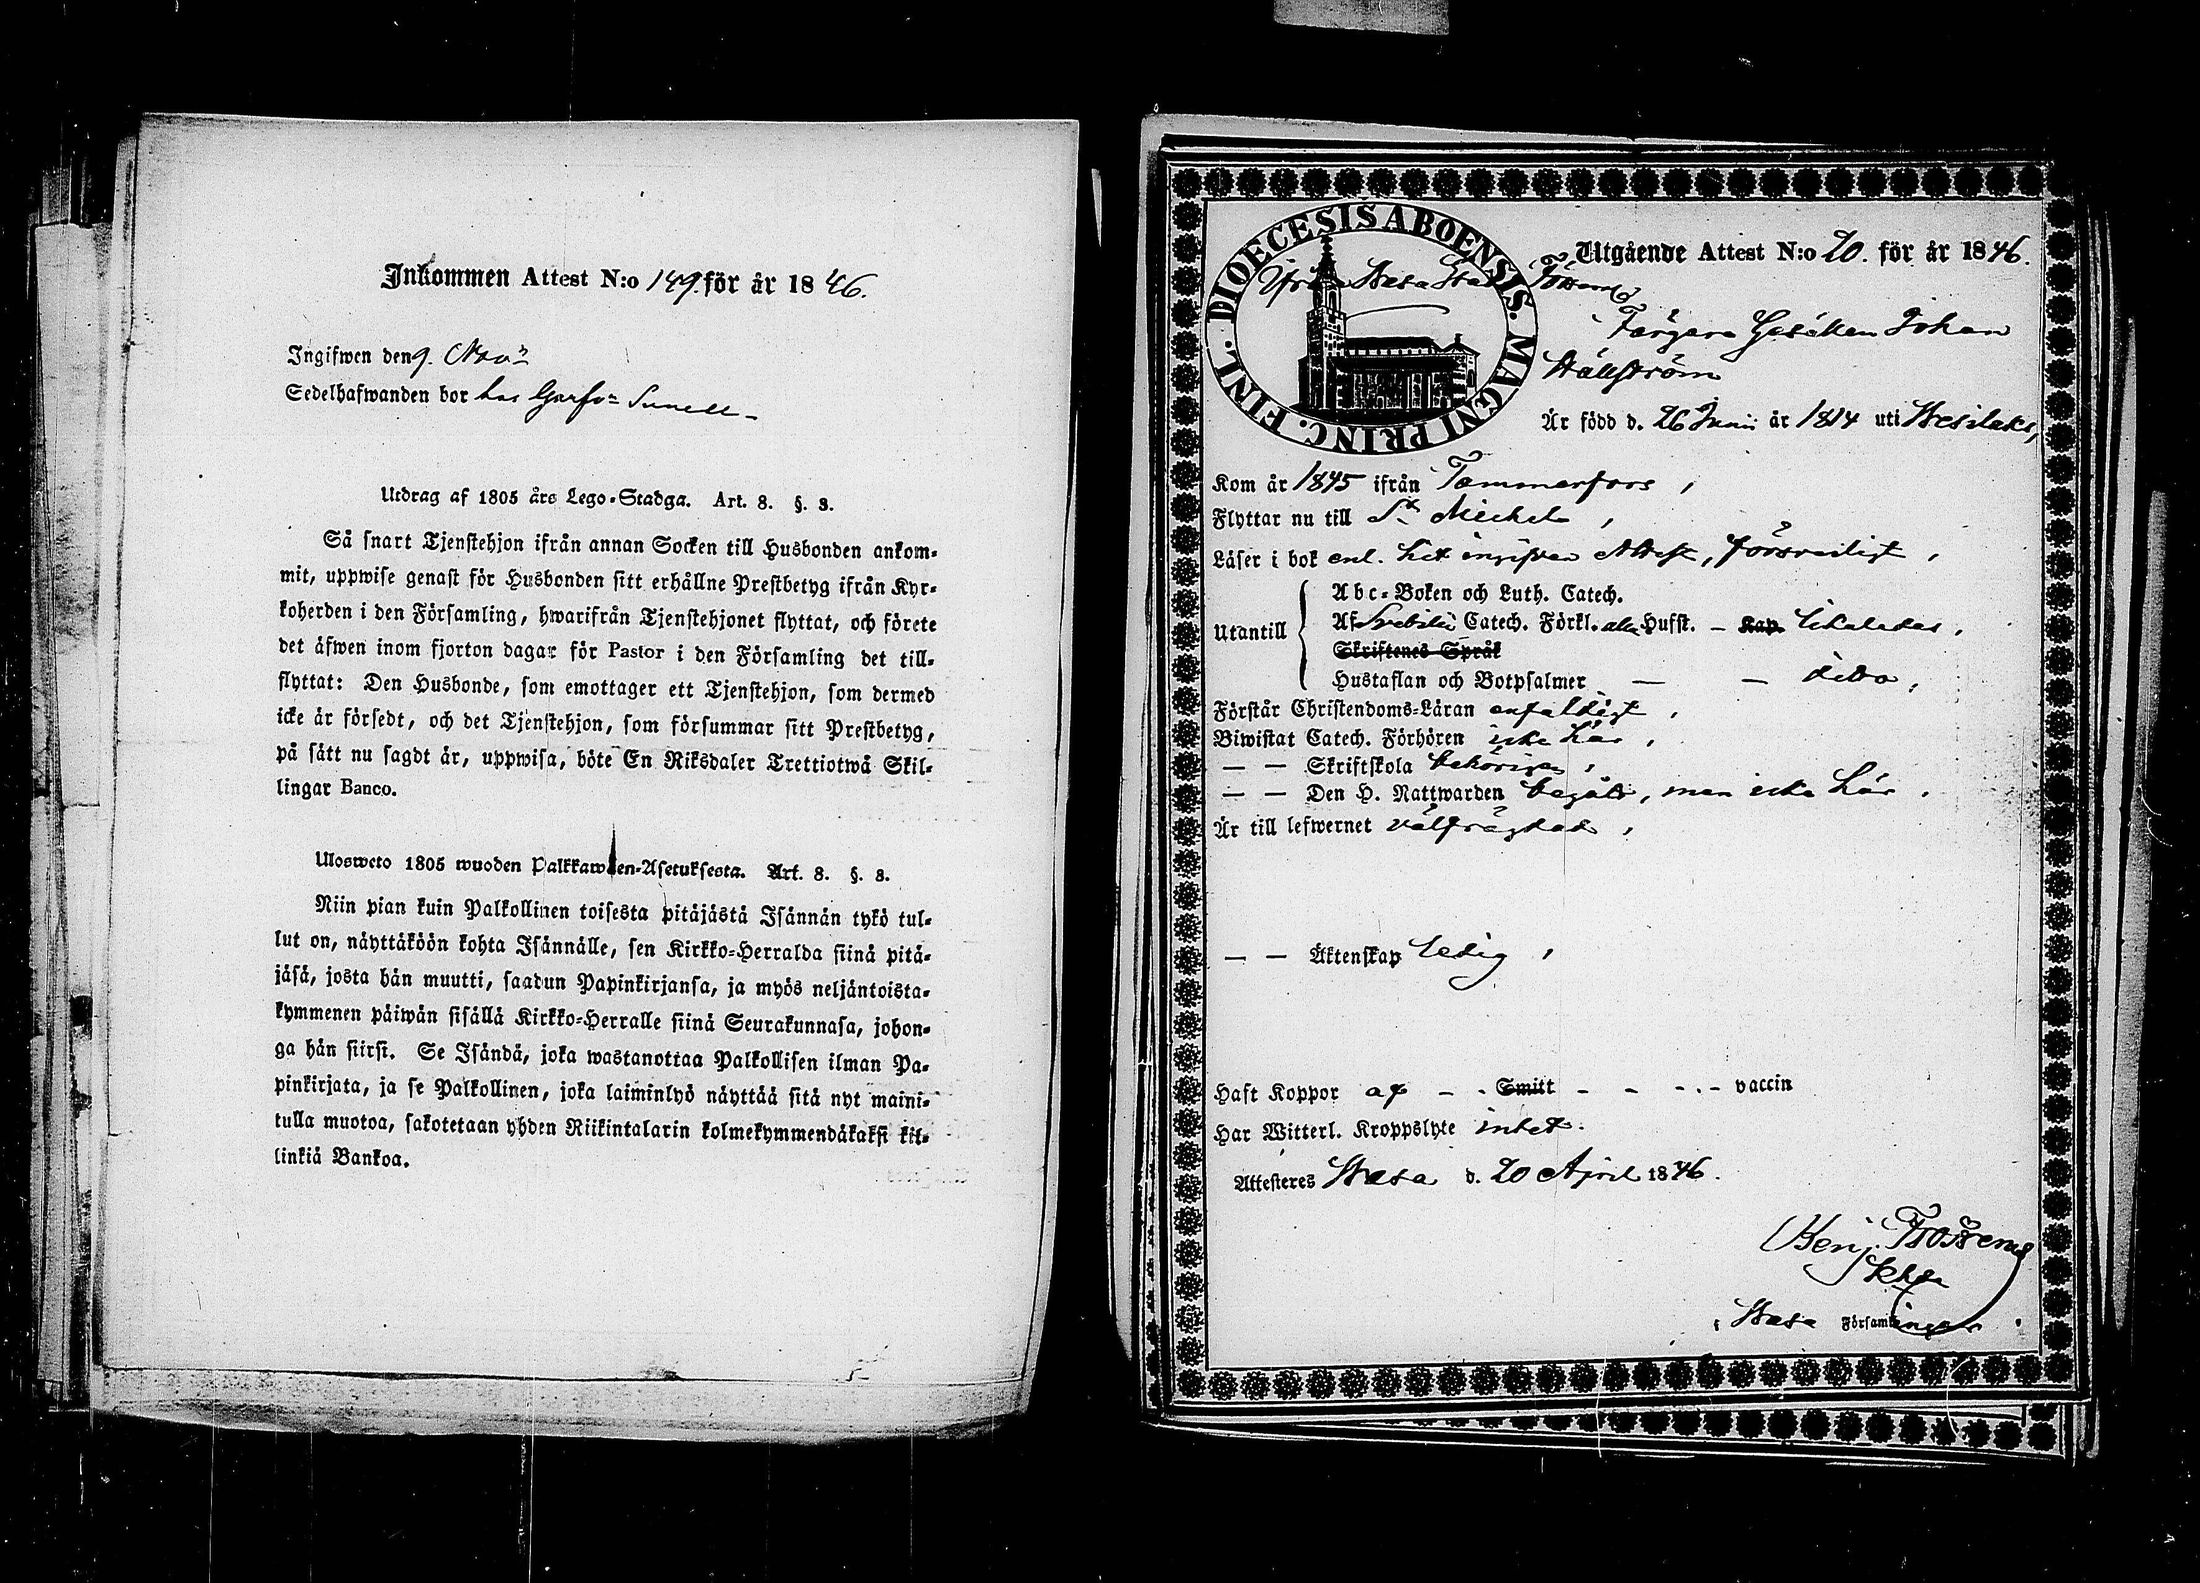 Inkommen Attest N:o 149. för år 1846.
Ingifwen den 9. Novr
Sedelhafwanden bor hos Garfvn Sunell
Utdrag af 1805 års Lego-Stadga. Art. 8. §. 3.
Så snart Tjenstehjon ifrån annan Socken till Husbonden ankom-
mit, uppwise genast för Husbonden sitt erhållne Prestbetyg ifrån Kyr-
koherden i den Församling, hwarifrån Tjenstehjonet flyttat, och förete
det äfwen inom fjorton dagar för Pastor i den Församling det till-
flyttat: Den Husbonde, som emottager ett Tjenstehjon, som dermed
icke är försedt, och det Tjenstehjon, som försummar sitt Prestbetyg,
på sätt nu sagdt är, uppwisa, böte En Riksdaler Trettiotwå Skil-
lingar Banco.
Ulosweto 1805 wuoden Palkkawäen-Asetuksesta. Art. 8. §. 3.
Niin pian kuin Palkollinen toisesta pitäjästä Isännän tykö tul-
lut on, näyttäköön kohta Isännälle, sen Kirkko-Herralda siinä pitä-
jäsä, josta hän muutti, saadun Papinkirjansa, ja myös neljäntoista-
kymmenen päiwän sisällä Kirkko-Herralle siinä Seurakunnasa, johon-
ga hän siirsi. Se Isändä, joka wastanottaa Palkollisen ilman Pa-
pinkirjata, ja se Palkollinen, joka laiminlyö näyttää sitä nyt maini-
tulla muotoa, sakotetaan yhden Riikintalarin kolmekymmendäkaksi kil-
linkiä Bankoa.
DIOECESIS ABOENSIS. MAGNI PRINC. FINL.
Utgående Attest N:o 20. för år 1846.
Ifrån Wasa Stads
Färgare Gesällen Johan
Hällström
Är född d. 26 Junii år 1814 uti Wesilaks,
Kom år 1845 ifrån Tammerfors,
Flyttar nu till St Michel,
Läser i bok enl. hit ingifven Attest, försvarligt,
Utantill
Abc-Boken och Luth. Catech.
Af Svebilii Catech. Förkl. alla Hufst. – Kap. likaledes,
Skriftenes Språk
Hustaflan och Botpsalmer – – dito,
Förstår Christendoms-Läran enfaldigt,
Biwistat Catech. Förhören icke här,
– – Skriftskola behörigen,
– – Den H. Nattwarden begått, men icke här,
Är till lefwernet välfrägdad,
– – Äktenskap ledig,
Haft Koppor af – - Smitt - - - – vaccin
Har Witterl. Kroppslyte intet.
Attesteres Wasa d. 20 April 1846.
Benj. Frosterus
i Wasa Församlingar.